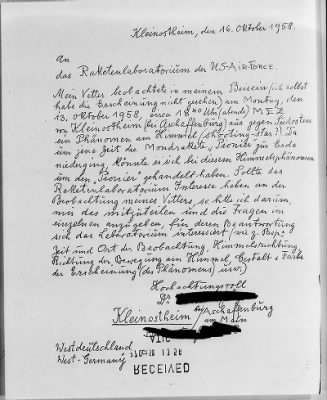 Kleinostheim, den 16. Oktober 1958.
An
das Raketenlaboratorium der US-AIR-FORCE.
Mein Vetter beobachtete in meinem Beisein (ich selbst
habe die Erscheinung nicht gesehen) am Montag, den
13. Oktober 1958, circa 18 40 Uhr (abends) MEZ
von Kleinostheim (bei Aschaffenburg) aus gegen Südosten
ein Phänomen am Himmel (shooting star?). Da
um jene Zeit die Mondrakete, Pionier zur Erde
niederging, könnte es sich bei diesem Himmelsphänomen
um den "Pionier" gehandelt haben. Sollte das
Raketenlaboratorium Interesse haben an der
Beobachtung meines Vetters, so bitte ich darum,
uns das mitzuteilen und die Fragen im
einzelnen anzugeben, für deren Beantwortung
sich das Laboratorium interessiert (wie z. Bsp.:
Zeit und Ort der Beobachtung, Himmelsrichtung,
Richtung der Bewegung am Himmel, Gestalt & Farbe
der Erscheinung (des Phänomens) usw.)
Hochachtungsvoll
Dr.
Kleinostheim Aschaffenburg
am Main
Westdeutschland
West-Germany
RECEIVED